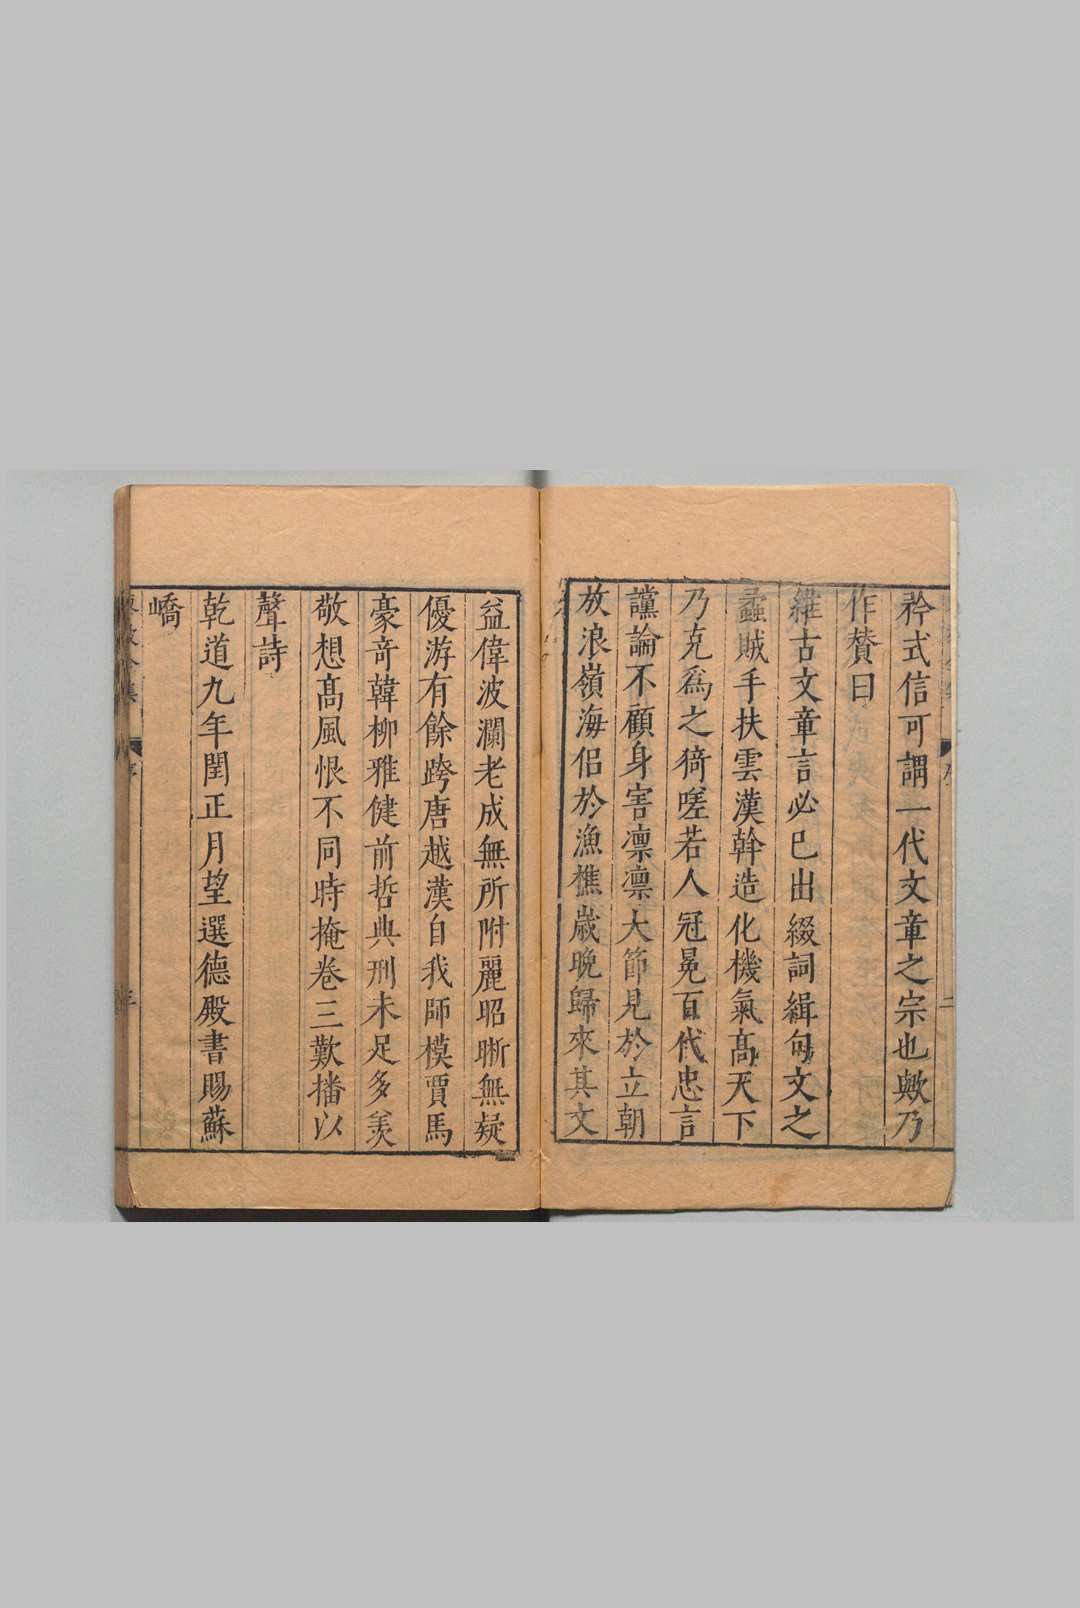 矜式信可謂一代文章之宗也歟乃
作贊曰
維古文章言必已出綴詞緝句文之
蟊賊手扶雲漢斡造化機氣髙天下
乃克爲之猗嗟若人冠冕百代忠言
讜論不顧身害凛凛大節見於立朝
放浪嶺海侶於漁樵嵗晚歸來其文
益偉波瀾老成無所附麗昭晰無疑
優游有餘跨唐越漢自我師模賈馬
豪竒韓柳雅健前哲典刑未足多羡
敬想髙風恨不同時掩卷三歎播以
聲詩
乾道九年閏正月望選德殿書賜蘇
嶠